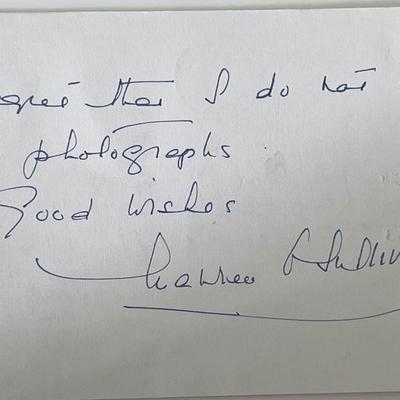 egret that I do not
photographs
Good wishes